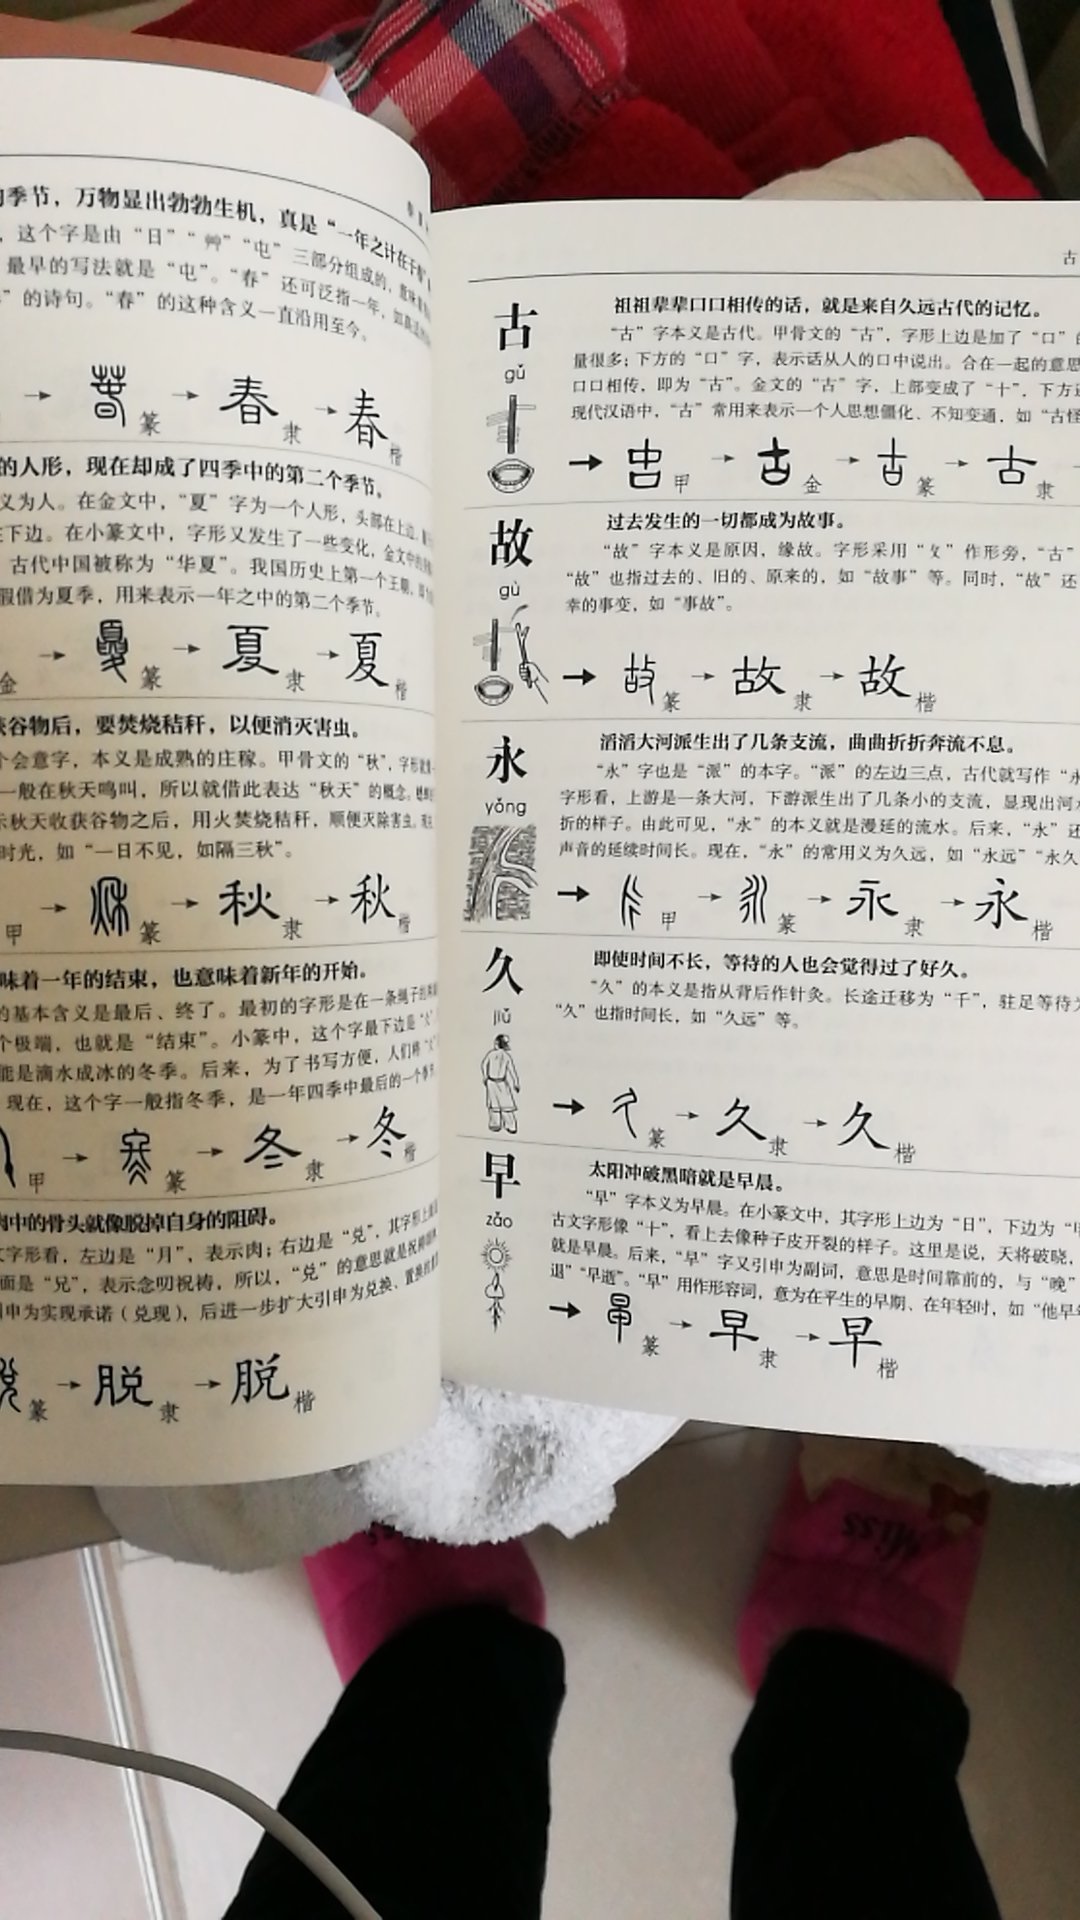 的季节，万物显出勃勃生机，真是“一年之计在于春”
，这个字是由“日”“艸”“屯”三部分组成的，意味着
最早的写法就是“屯”。“春”还可泛指一年，如
”的诗句。“春”的这种含义一直沿用至今。
→ 篆 → 春 隶 → 春 楷
的人形，现在却成了四季中的第二个季节。
义为人。在金文中，“夏”字为一个人形，头部在上边，
下边。在小篆文中，字形又发生了一些变化，金文中的
古代中国被称为“华夏”。我国历史上第一个王朝，
假借为夏季，用来表示一年之中的第二个季节。
金 → 篆 → 夏 隶 → 夏 楷
谷物后，要焚烧秸秆，以便消灭害虫。
个会意字，本义是成熟的庄稼。甲骨文的“秋”，字形
一般在秋天鸣叫，所以就借此表达“秋天”的概念。
示秋天收获谷物之后，用火焚烧秸秆，顺便灭除害虫。
时光，如“一日不见，如隔三秋”。
甲 → 篆 → 秋 隶 → 秋 楷
味着一年的结束，也意味着新年的开始。
的基本含义是最后、终了。最初的字形是在一条绳子的
个极端，也就是“结束”。小篆中，这个字最下边是“
能是滴水成冰的冬季。后来，为了书写方便，人们将“
现在，这个字一般指冬季，是一年四季中最后的一个季节。
甲 → 篆 → 冬 隶 → 冬 楷
肉中的骨头就像脱掉自身的阻碍。
文字形看，左边是“月”，表示肉；右边是“兑”，其字形上面
面是“兄”，表示念叨祝祷，所以，“兑”的意思就是祝
引申为实现承诺（兑现），后进一步扩大引申为兑换、置换
篆 → 脱 隶 → 脱 楷
古
古
gǔ
祖祖辈辈口口相传的话，就是来自久远古代的记忆。
“古”字本义是古代。甲骨文的“古”，字形上边是加了“口”的
量很多；下方的“口”字，表示话从人的口中说出。合在一起的意思
口口相传，即为“古”。金文的“古”字，上部变成了“十”，下方
现代汉语中，“古”常用来表示一个人思想僵化、不知变通，如“古怪
→ 甲 → 古 金 → 古 篆 → 古 隶
故
gù
过去发生的一切都成为故事。
“故”字本义是原因，缘故。字形采用“攵”作形旁，“古”
“故”也指过去的、旧的、原来的，如“故事”等。同时，“故”还
幸的事变，如“事故”。
→ 故 篆 → 故 隶 → 故 楷
永
yǒng
滔滔大河派生出了几条支流，曲曲折折奔流不息。
“永”字也是“派”的本字。“派”的左边三点，古代就写作“永
字形看，上游是一条大河，下游派生出了几条小的支流，显现出河水
折的样子。由此可见，“永”的本义就是漫延的流水。后来，“永”还
声音的延续时间长。现在，“永”的常用义为久远，如“永远”“永久
→ 甲 → 篆 → 永 隶 → 永 楷
久
jiǔ
即使时间不长，等待的人也会觉得过了好久。
“久”的本义是指从背后作针灸。长途迁移为“千”，驻足等待为
“久”也指时间长，如“久远”等。
→ 篆 → 久 隶 → 久 楷
早
zǎo
太阳冲破黑暗就是早晨。
“早”字本义为早晨。在小篆文中，其字形上边为“日”，下边为“甲
古文字形像“十”，看上去像种子皮开裂的样子。这里是说，天将破晓，
就是早晨。后来，“早”字又引申为副词，意思是时间靠前的，与“晚”
退”“早逝”。“早”用作形容词，意为在平生的早期、在年轻时，如“他早年
→ 篆 → 早 隶 → 早 楷
Miss